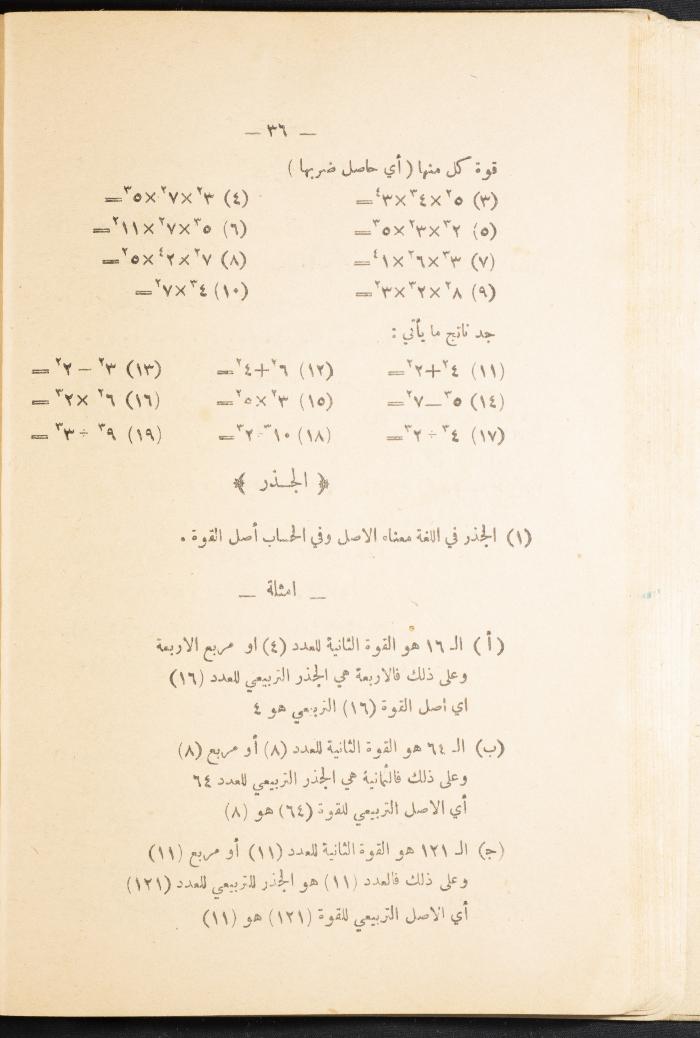 — ٣٦ —
قوة كل منها ( أي حاصل ضربها )
(٣) ٥^٢×٤^٣×٣^٤= (٤) ٣^٢×٧^٢×٥^٣=
(٥) ٢^٣×٣^٢×٥^٣= (٦) ٥^٣×٧^٢×١١^٢=
(٧) ٣^٣×٦^٢×١^٤= (٨) ٧^٢×٢^٤×٥^٢=
(٩) ٨^٢×٢^٣×٣^٢= (١٠) ٤^٣×٧^٢=
جد ناتج ما يأتي :
(١١) ٤^٢+٢^٢= (١٢) ٦^٢+٤^٢= (١٣) ٣^٢ — ٢^٢ =
(١٤) ٥^٣—٧^٢= (١٥) ٣^٢×٥^٢= (١٦) ٦^٢× ٢^٣ =
(١٧) ٤^٣÷ ٢^٣= (١٨) ١٠^٣÷٢^٣= (١٩) ٩^٣÷ ٣^٣ =
﴿ الجـذر ﴾
(١) الجذر في اللغة معناه الاصل وفي الحساب أصل القوة .
— امثلة —
( أ ) الـ ١٦ هو القوة الثانية للعدد (٤) او مربع الاربعة
وعلى ذلك فالاربعة هي الجذر التربيعي للعدد (١٦)
اي أصل القوة (١٦) التربيعي هو ٤
(ب) الـ ٦٤ هو القوة الثانية للعدد (٨) أو مربع (٨)
وعلى ذلك فالثمانية هي الجذر التربيعي للعدد ٦٤
أي الاصل التربيعي للقوة (٦٤) هو (٨)
(ج) الـ ١٢١ هو القوة الثانية للعدد (١١) أو مربع (١١)
وعلى ذلك فالعدد (١١) هو الجذر للتربيعي للعدد (١٢١)
أي الاصل التربيعي للقوة (١٢١) هو (١١)